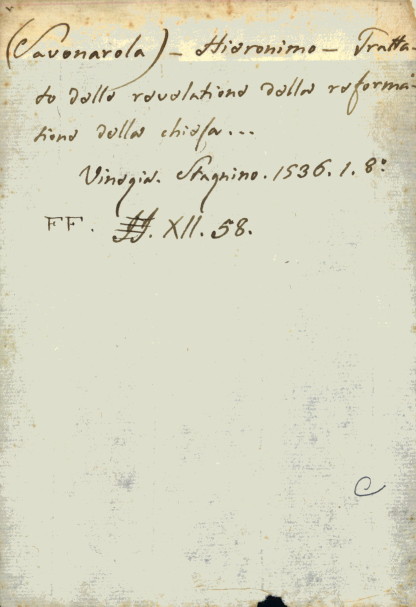 (Savonarola) - Hieronimo - Tratta-
to delle revelatione della reforma-
tione della chiesa...
Vinegia. Stagnino. 1536. 1. 8º
FF. XII. 58.
C